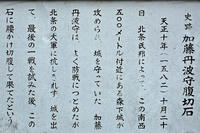 史跡 加藤丹波守腹切石
天正十年(一五八二)十月二十
日 北条氏邦によって、この南西
五〇〇メートル付近にある森下城が
攻められ 城を守っていた 加藤
丹波守は よく防戦につとめたが
北条の大軍に抗しきれず 城を出
て、最後の一戦を試みた後、この
石に腰かけ切腹して果てたという。